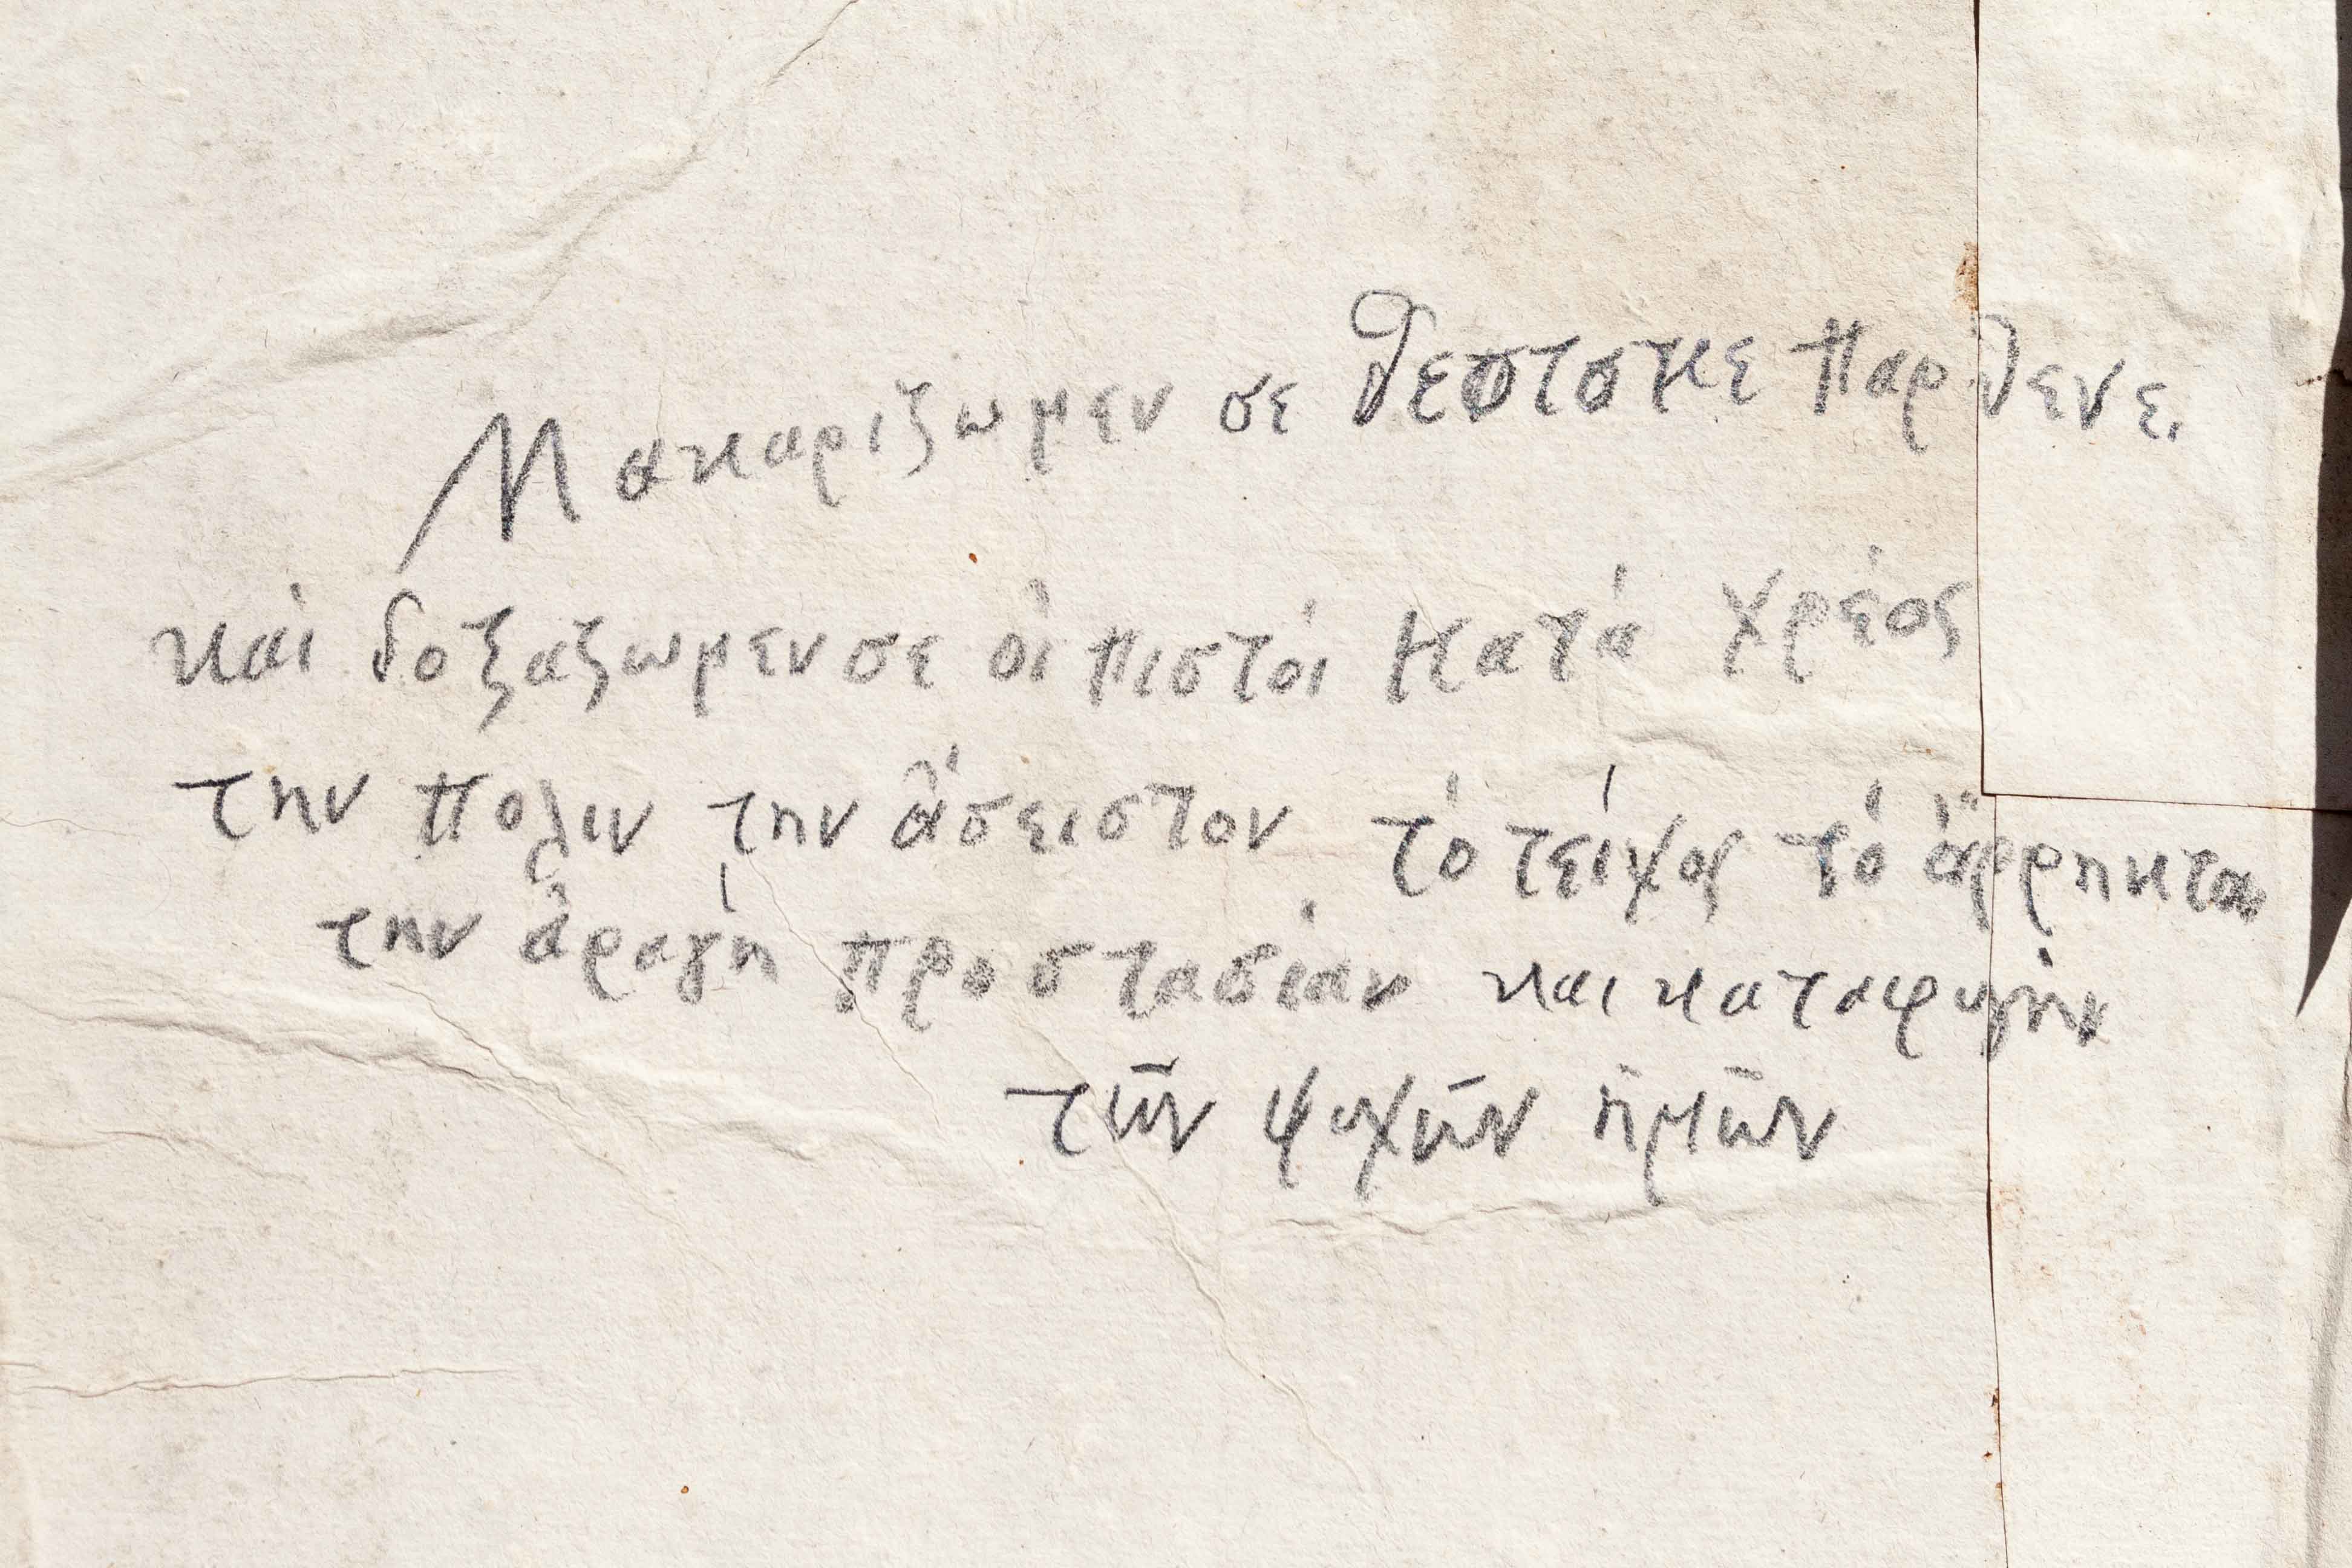 Μακαριζωμεν σε Θεοτοκε Παρθενε.
και δοξαζωμεν σε οἱ πιστοί Κατά χρέος
την πολιν την ἄσειστον τό τείχος τό ἄρρηκτον
την ἀραγή προστασίαν και καταφυγήν
τῶν ψυχῶν ἡμῶν